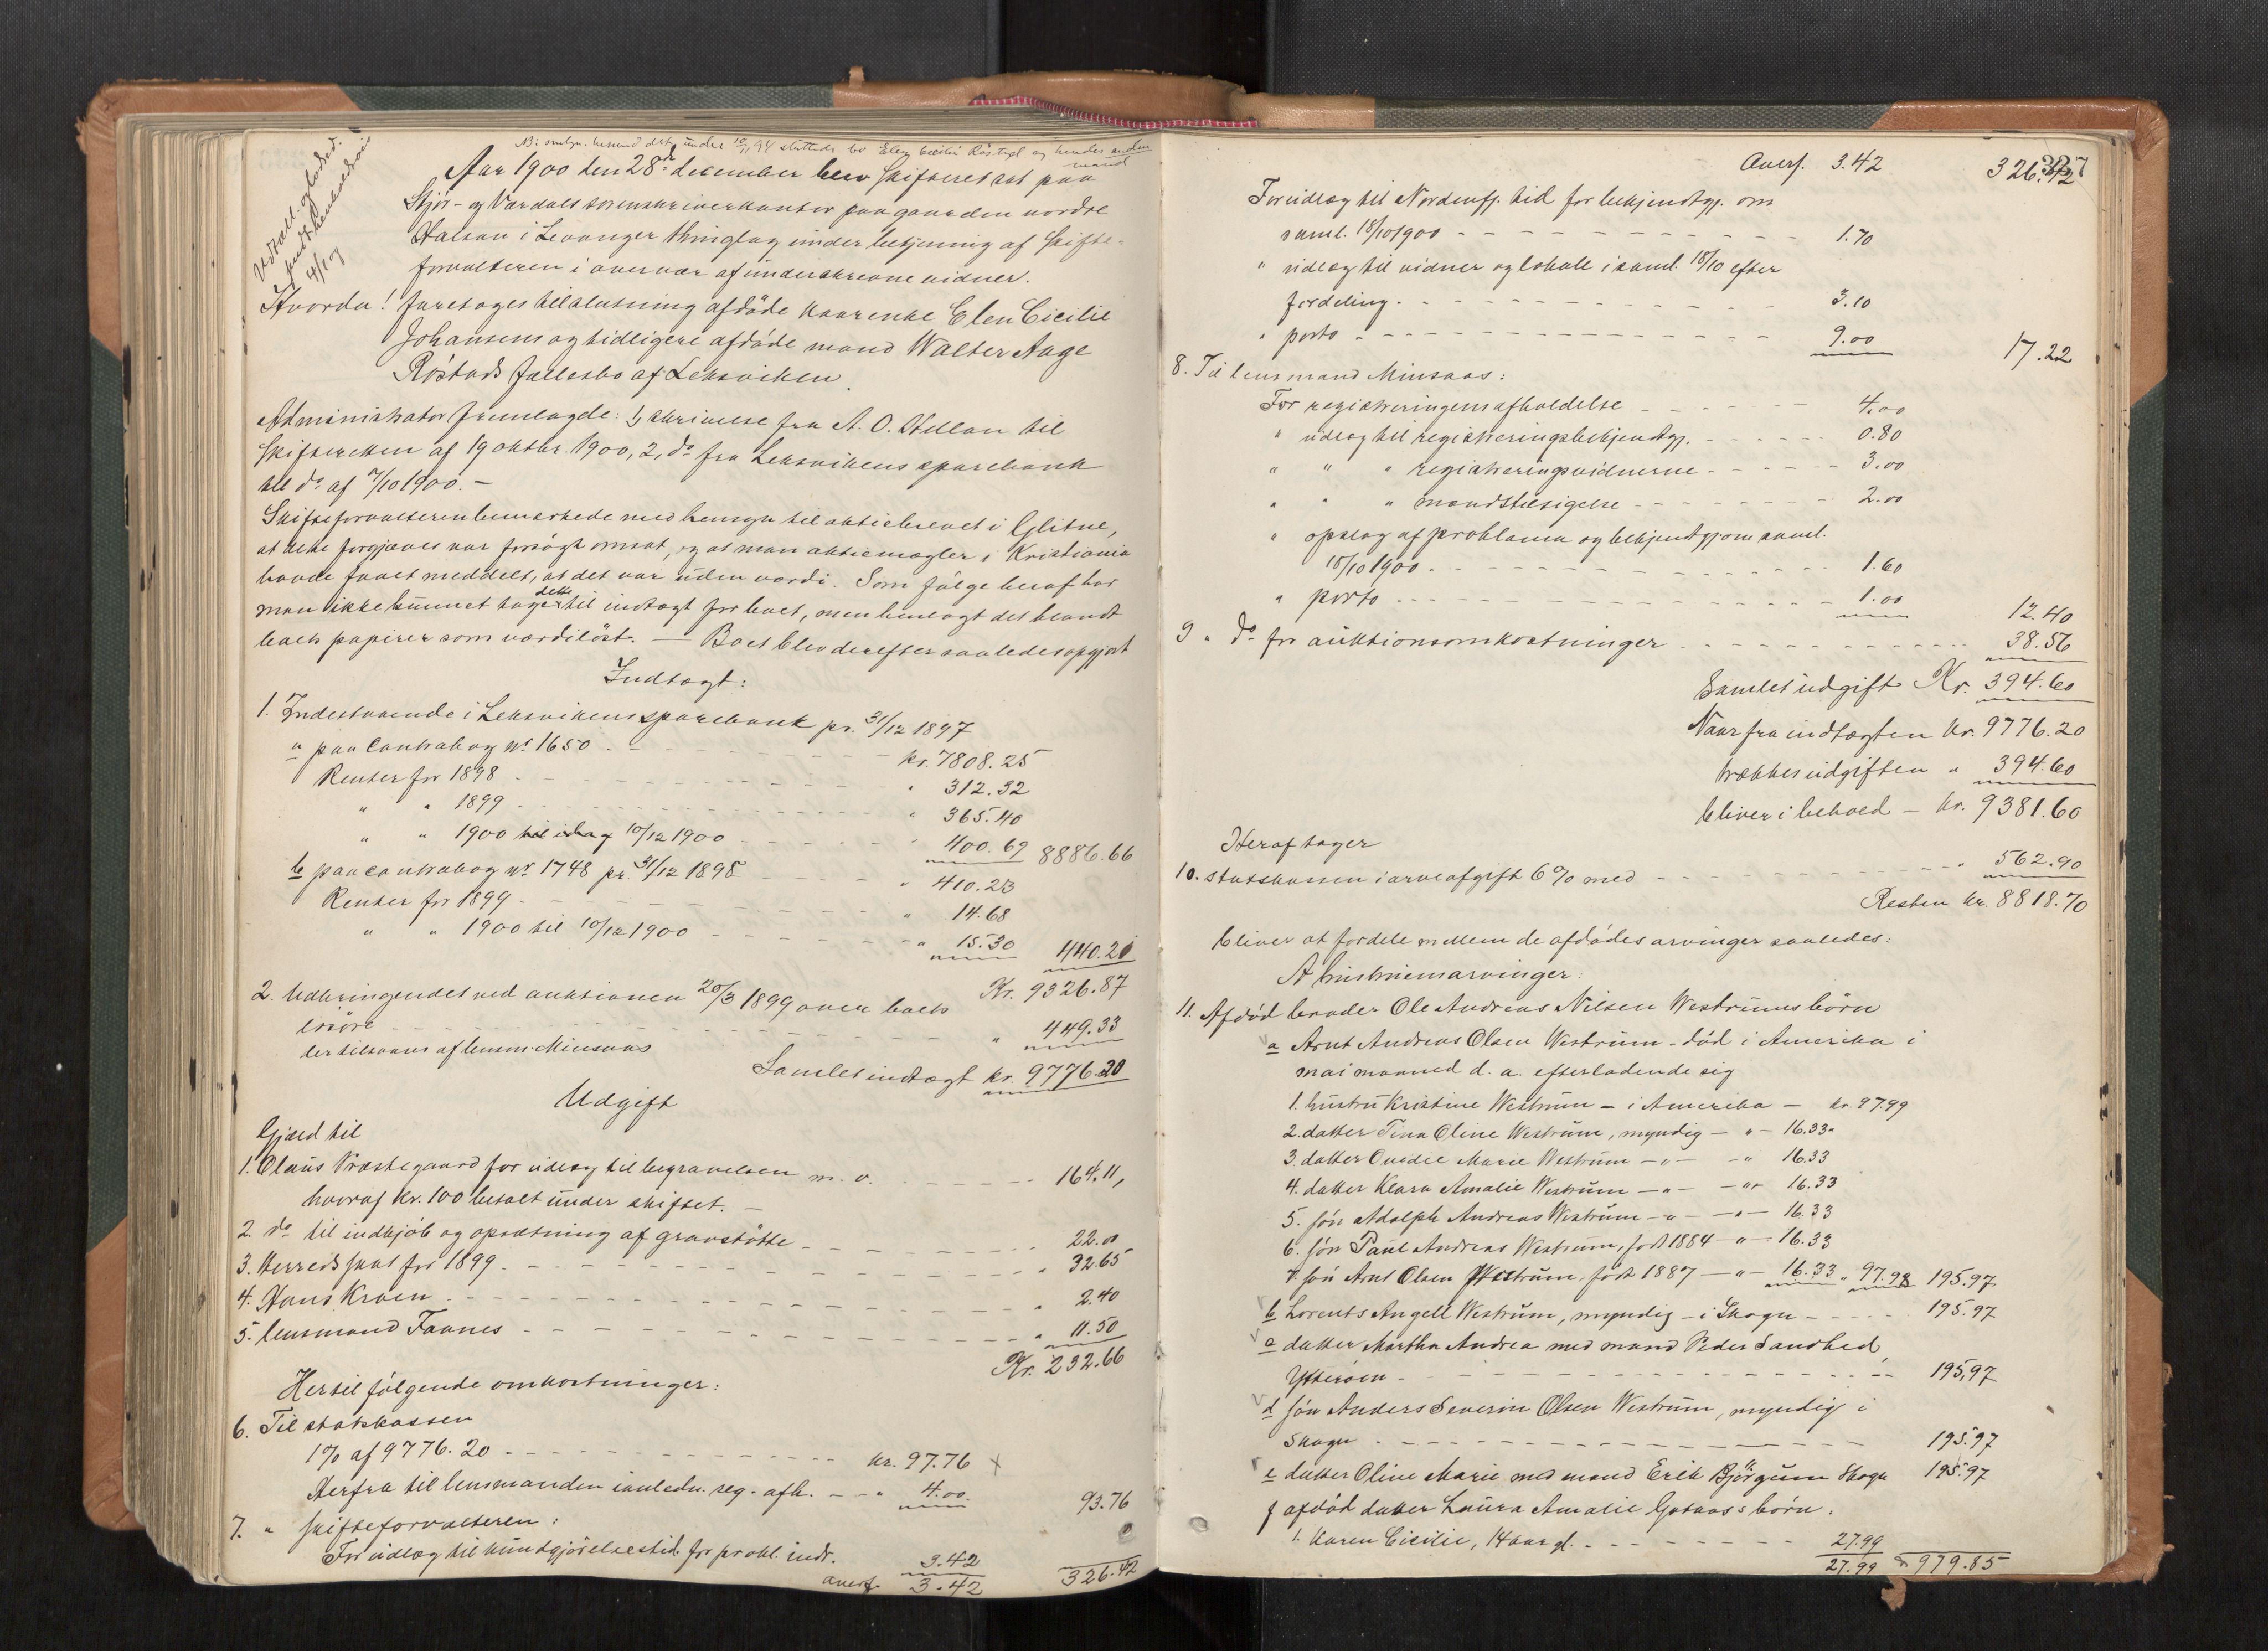 NB: omgjn. hermed det under 10/11 94 sluttede bo Elen Cecilie Röstad og hendes anden mand
Aar 1900 den 28de december blev skifteret sat paa
Stjör- og Værdals sorenskriverkontor paa gaarden nordre
Halsan i Levanger thinglag under betjening af skifte-
forvalteren i overvær af underskrevne vidner.
Hvorda! foretoges tilslutning afdöde kaarenke Elen Cicilie
Johansens og tidligere afdöde mand Walter Aage
Röstads fællesbo af Leksviken.
Administrator fremlagde: 1, skrivelse fra A. O. Hellan til
skifteretten af 19 oktbr. 1900, 2, do fra Leksvikens sparebank
alt do af 7/10 1900. –
Skifteforvalteren bemærkede med hensyn til aktiebrevet i Glitne,
at dette forgjæves var forsögt omsat, og at man aktiemægler i Kristiania
havde faaet meddelt, at det var uden værdi. Som fölge heraf har
man ikke kunnet tage dette til indtægt for boet, men henlagt det blandt
boets papirer som værdilöst. — Boet blev derefter saaledes opgjort
Indtægt:
1. Indestaaende i Leksvikens sparebank pr. 31/12 1897
a paa Contrabog No 1650 - - - kr. 7808.25
Renter for 1898 - - - " 312.32
" " 1899 - - - " 365.40
" " 1900 til idag 10/12 1900 - - - " 400.69 8886.66
b paa contrabog No 1748 pr. 31/12 1898 - - - " 410.23
Renter for 1899 - - - " 14.68
" " 1900 til 10/12 1900 - - - " 15.30 440.21
Kr. 9326.87
2. Udbringendet ved auktionen 20/3 1899 over boets
lösöre - - - " 449.33
der tilsvares af lensm. Minsaas
Samlet indtægt kr. 9776.20
Udgift
Gjæld til
1. Olaus Præstegaard for udlæg til begravelsen m. v. - - - 164.11,
hvoraf kr. 100 betalt under skiftet. –
2. do til indkjöb og opsætning af gravstötte - - - 22.00
3. Herredsskat for 1899 - - - " 32.65
4. Hans Kroen - - - " 2.40
5. lensmand Faanes - - - " 11.50
Kr. 232.66
Hertil fölgende omkostninger:
6. Til statskassen
1% af 9776.20 - - - kr. 97.76
Herfra til lensmanden i anledn. reg. afh. - - " 4.00 93.76
7. " skifteforvalteren:
For udlæg til kundgjörelsestid. for prokl. indr. 3.42
overf. 3.42 326.42
Overf. 3.42 326.42
For udlæg til Nordenfj. tid for bekjendtgj. om
saml. 18/10 1900 - - - 1.70
" udlæg til vidner og lokale i saml. 18/10 efter
fordeling - - - 3.10
" porto - - - 9.00 17.22
8. Til lensmand Minsaas:
For registreringens afholdelse - - - 4.00
" udlæg til registreringsbekjendtgj. - - - 0.80
" " " registreringsvidnerne - - - 3.00
" " " mandstilsigelse - - - 2.00
" opslag af proklama og bekjendtgj om saml.
18/10 1900 - - - 1.60
" porto - - - 1.00 12.40
9 " do for auktionsomkostninger - - - 38.56
Samlet udgift Kr. 394.60
Naar fra indtægten Kr. 9776.20
trækkes udgiften " 394.60
bliver i behold – kr. 9381.60
Heraf tager
10. statskassen i arveafgift 6% med - - - " 562.90
Resten kr. 8818.70
bliver at fordele mellem de afdödes arvinger saaledes:
A hustruens arvinger:
11. Afdöd broder Ole Andreas Nilsen Westrums börn
a Arnt Andreas Olsen Westrum - död i Amerika i
mai maaned d. a. efterladende sig
1. hustru Kristine Westrum – i Amerika – kr. 97.99
2. datter Tina Oline Westrum, myndig – " – 16.33
3. datter Ovidie Marie Westrum – " – – " 16.33
4. datter Klara Amalie Westrum – " – – " 16.33
5. sön Adolph Andreas Westrum – " – – " – 16.33
6. sön Paul Andreas Westrum, født 1884 – " – 16.33
7. sön Arnt Olsen Westrum, födt 1887 – " – 16.33 " 97.98 195.97
b Lorents Angell Westrum, myndig – i Skogn - - - 195.97
c datter Martha Andrea med mand Peder Sandhed
Ytteröen - - - 195.97
d sön Anders Severin Olsen Westrum, myndig i
Skogn - - - 195.97
e datter Oline Marie med mand Erik Bjørgum Skogn 195.97
f afdöd datter Laura Amalie Gotaas's börn:
1. Karen Cicilie, 14 aar gl. - - - 27.99
27.99 979.85